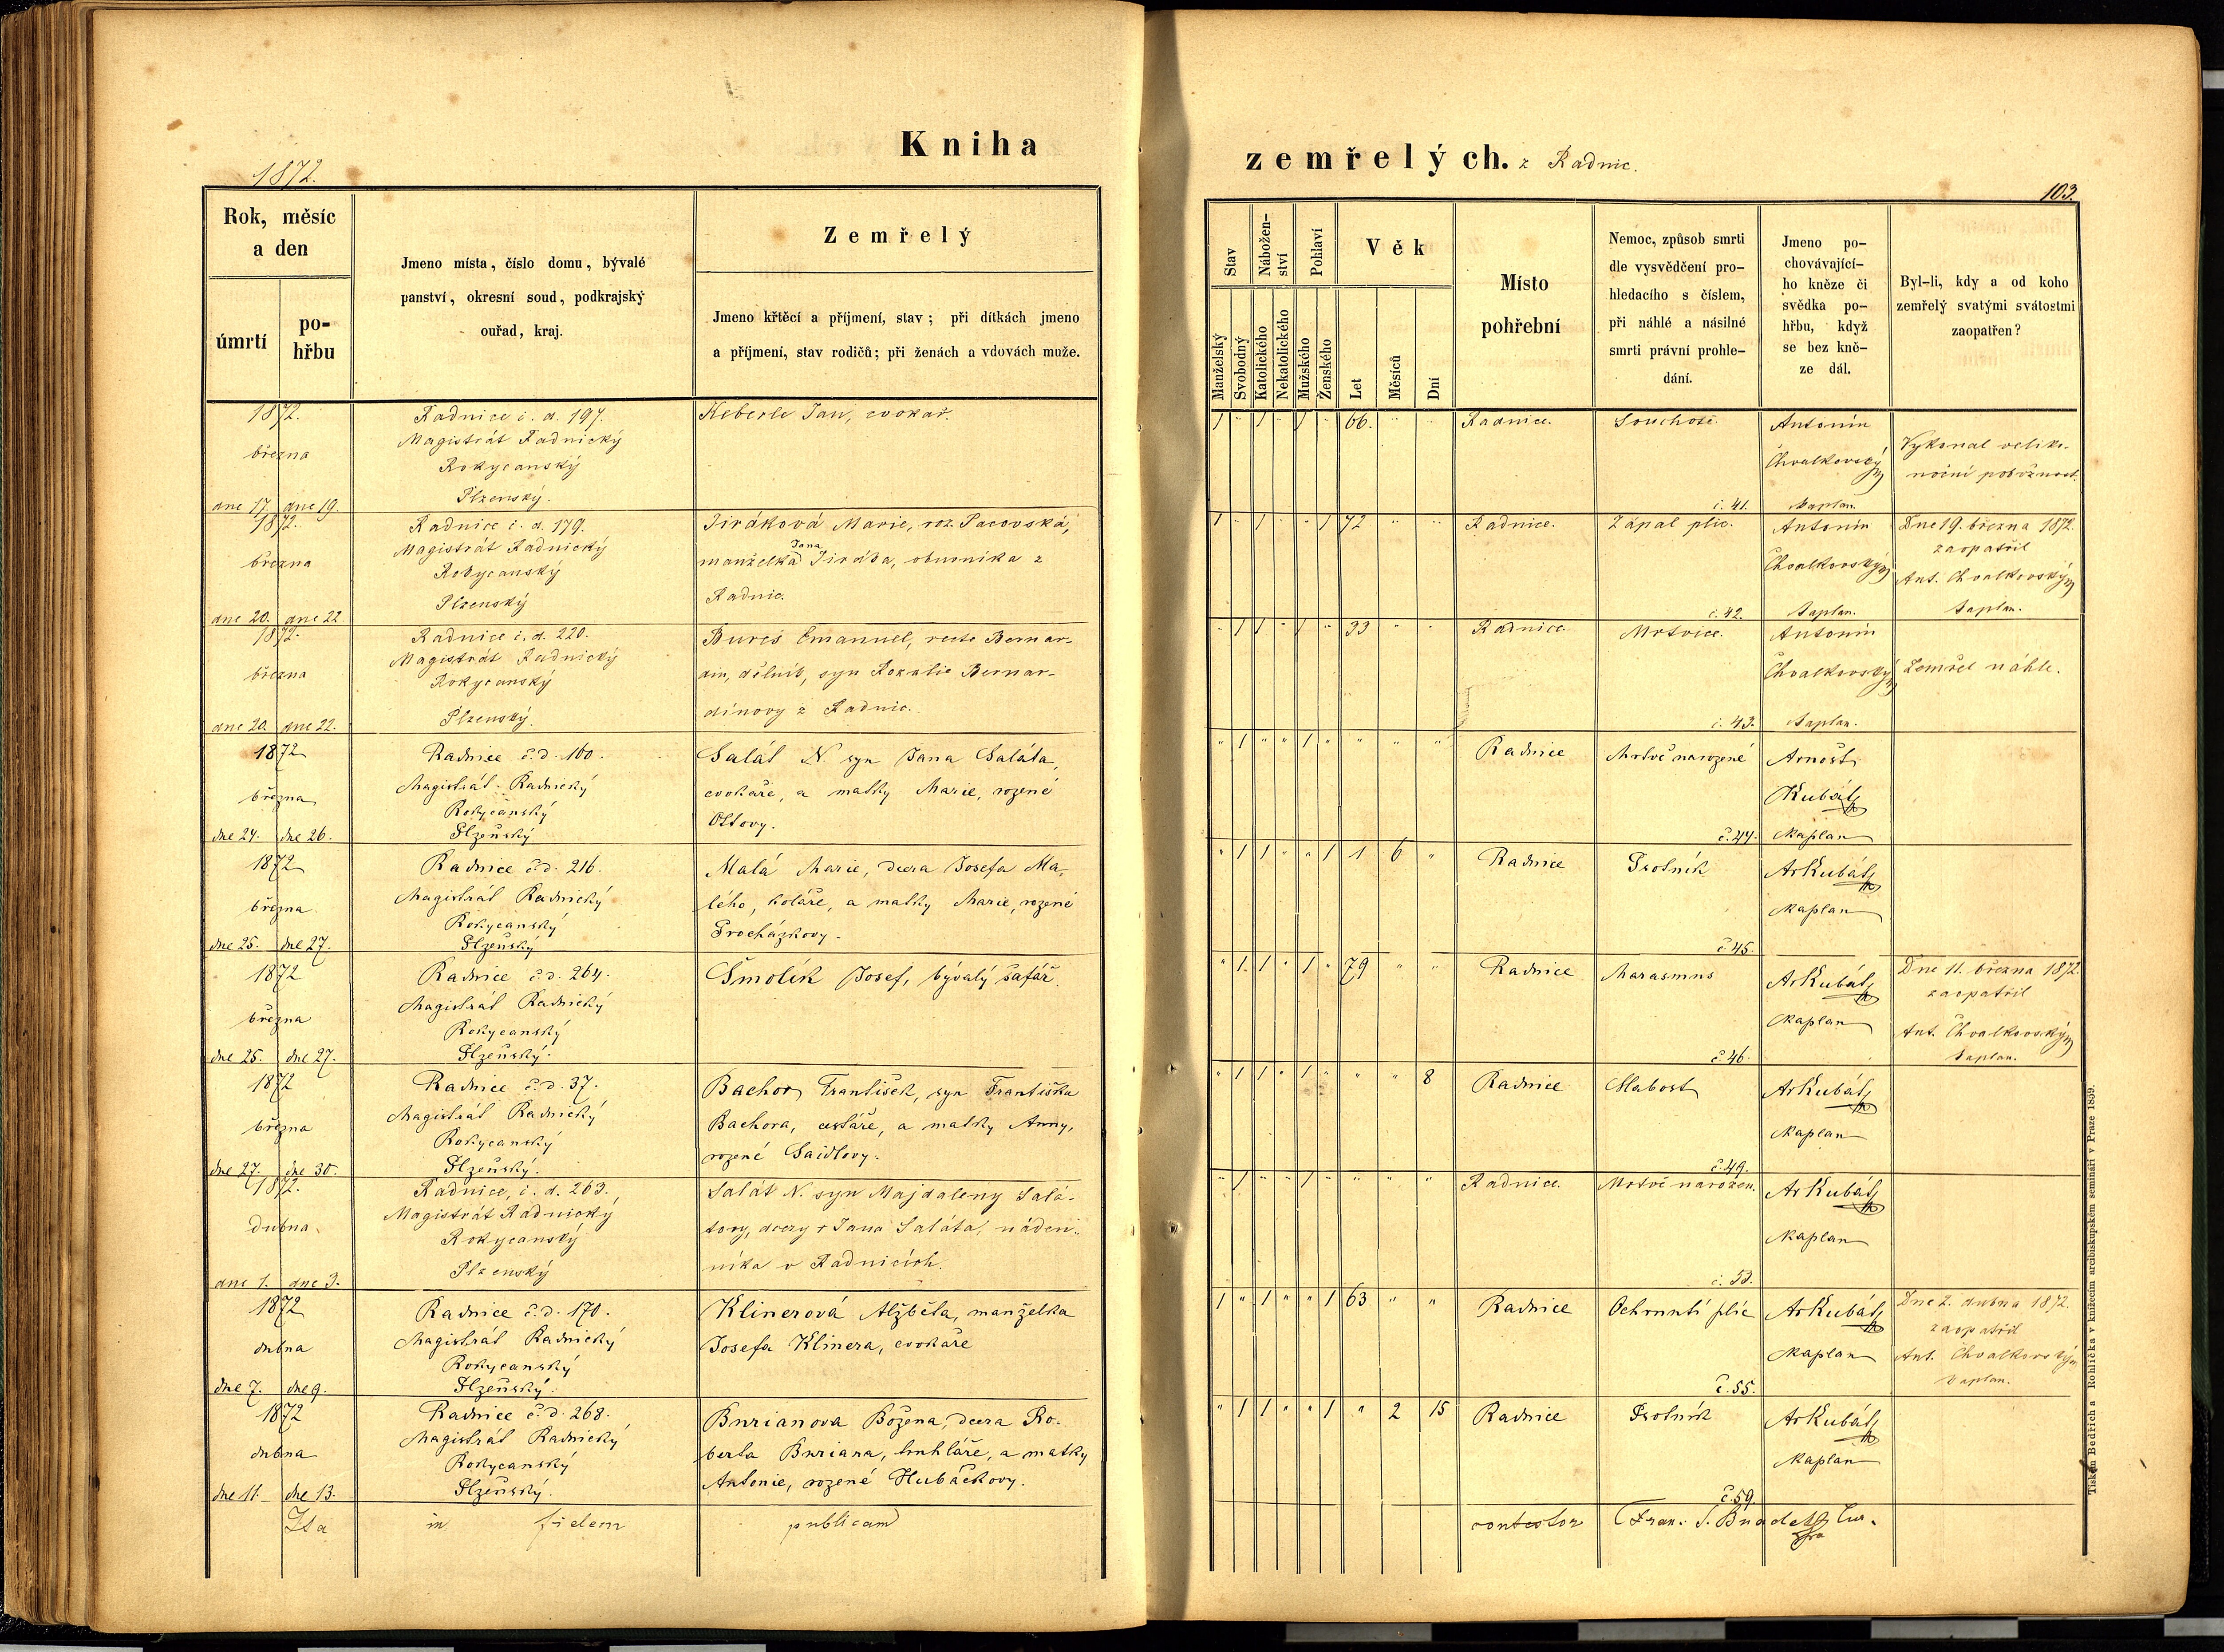 1872.
Kniha
zemřelých. z Radnic.
103.
Rok, měsíc
a den
úmrtí
po-
hřbu
Jmeno místa, číslo domu, bývalé
panství, okresní soud, podkrajský
ouřad, kraj.
Zemřelý
Jmeno křtěcí a příjmení, stav; při dítkách jmeno
a příjmení, stav rodičů; při ženách a vdovách muže.
Stav
Manželský
Svobodný
Nábožen-
ství
Katolického
Nekatolického
Pohlaví
Mužského
Ženského
Věk
Let
Měsíců
Dní
Místo
pohřební
Nemoc, způsob smrti
dle vysvědčení pro-
hledacího s číslem,
při náhlé a násilné
smrti právní prohle-
dání.
Jmeno po-
chovávající-
ho kněze či
svědka po-
hřbu, když
se bez kně-
ze dál.
Byl-li, kdy a od koho
zemřelý svatými svátostmi
zaopatřen?
1872.
března
dne 17. dne 19.
Radnice č. d. 197.
Magistrát Radnický
Rokycanský
Plzenský.
Keberle Jan, cvokař.
1 " 1 " 1 " 66. " "
Radnice.
Souchotě
č. 41.
Antonín
Chvalkovský
Kaplan.
Vykonal veliko-
noční pobožnost.
1872.
března
dne 20. dne 22
Radnice č. d. 179.
Magistrát Radnický
Rokycanský
Plzenský
Jiráková Marie, roz. Pacovská,
manželka Jana Jiráka, obuvníka z
Radnic.
1 " 1 " " 1 72 " "
Radnice.
Zápal plic.
č. 42.
Antonín
Chvalkovský
Kaplan.
Dne 19. března 1872.
zaopatřil
Ant. Chvalkovský
Kaplan.
1872.
března
dne 20. dne 22.
Radnice č. d. 220.
Magistrát Radnický
Rokycanský
Plzenský.
Bureš Emanuel, recte Bernar-
din, dělník, syn Rozalie Bernar-
dinovy z Radnic.
" 1 1 " 1 " 33 " "
Radnice.
Mrtvice.
č. 43.
Antonín
Chvalkovský
Kaplan.
Zemřel náhle.
1872
března
dne 24. dne 26.
Radnice č. d. 160.
Magistrát Radnický
Rokycanský
Plzeňský
Salát N. syn Jana Saláta,
cvokaře, a matky Marie, rozené
Ottovy.
" 1 " " 1 " " " "
Radnice
Mrtvě narozené
č. 44.
Arnošt
Kubát
Kaplan
1872
března
dne 25. dne 27.
Radnice č. d. 216.
Magistrát Radnický
Rokycanský
Plzeňský
Malá Marie, dcera Josefa Ma-
lého, koláře, a matky Marie, rozené
Procházkovy.
" 1 1 " " 1 1 6 "
Radnice
Psotník
č. 45.
ArKubát
Kaplan
1872
března
dne 25. dne 27.
Radnice č. d. 264.
Magistrát Radnický
Rokycanský
Plzeňský.
Šmolík Josef, bývalý šafář.
" 1 1 " 1 " 79 " "
Radnice
Marasmus
č. 46.
ArKubát
Kaplan
Dne 11. března 1872.
zaopatřil
Ant. Chvalkovský
Kaplan.
1872
března
dne 27. dne 30.
Radnice č. d. 37.
Magistrát Radnický
Rokycanský
Plzeňský.
Bachor František, syn Františka
Bachora, cestáře, a matky Anny,
rozené Saidlovy.
" 1 1 " 1 " " " 8
Radnice
Slabost
č. 49.
ArKubát
Kaplan
1872.
dubna
dne 1. dne 3.
Radnice, č. d. 263.
Magistrát Radnický
Rokycanský
Plzenský
Salát N. syn Majdaleny Salá-
tovy, dcery † Jana Saláta, náden-
níka v Radnicích.
" 1 " " 1 " " " "
Radnice.
Mrtvě narozen.
č. 53.
ArKubát
Kaplan
1872
dubna
dne 7. dne 9.
Radnice č. d. 170.
Magistrát Radnický
Rokycanský
Plzeňský.
Klinerová Alžběta, manželka
Josefa Klinera, cvokaře
1 " 1 " " 1 63 " "
Radnice
Ochrnutí plic
č. 55.
ArKubát
Kaplan
Dne 2. dubna 1872.
zaopatřil
Ant. Chvalkovský
Kaplan.
1872
dubna
dne 11. dne 13.
Radnice č. d. 268.
Magistrát Radnický
Rokycanský
Plzeňský.
Burianova Božena, dcera Ro-
berta Buriana, truhláře, a matky
Antonie, rozené Hubáčkovy.
" 1 1 " " 1 " 2 15
Radnice
Psotník
č. 59.
ArKubát
Kaplan
Ita in fidem publicam contestor
Tiskem Bedřicha Rohlíčka v knížecím arcibiskupském semináři v Praze 1859.